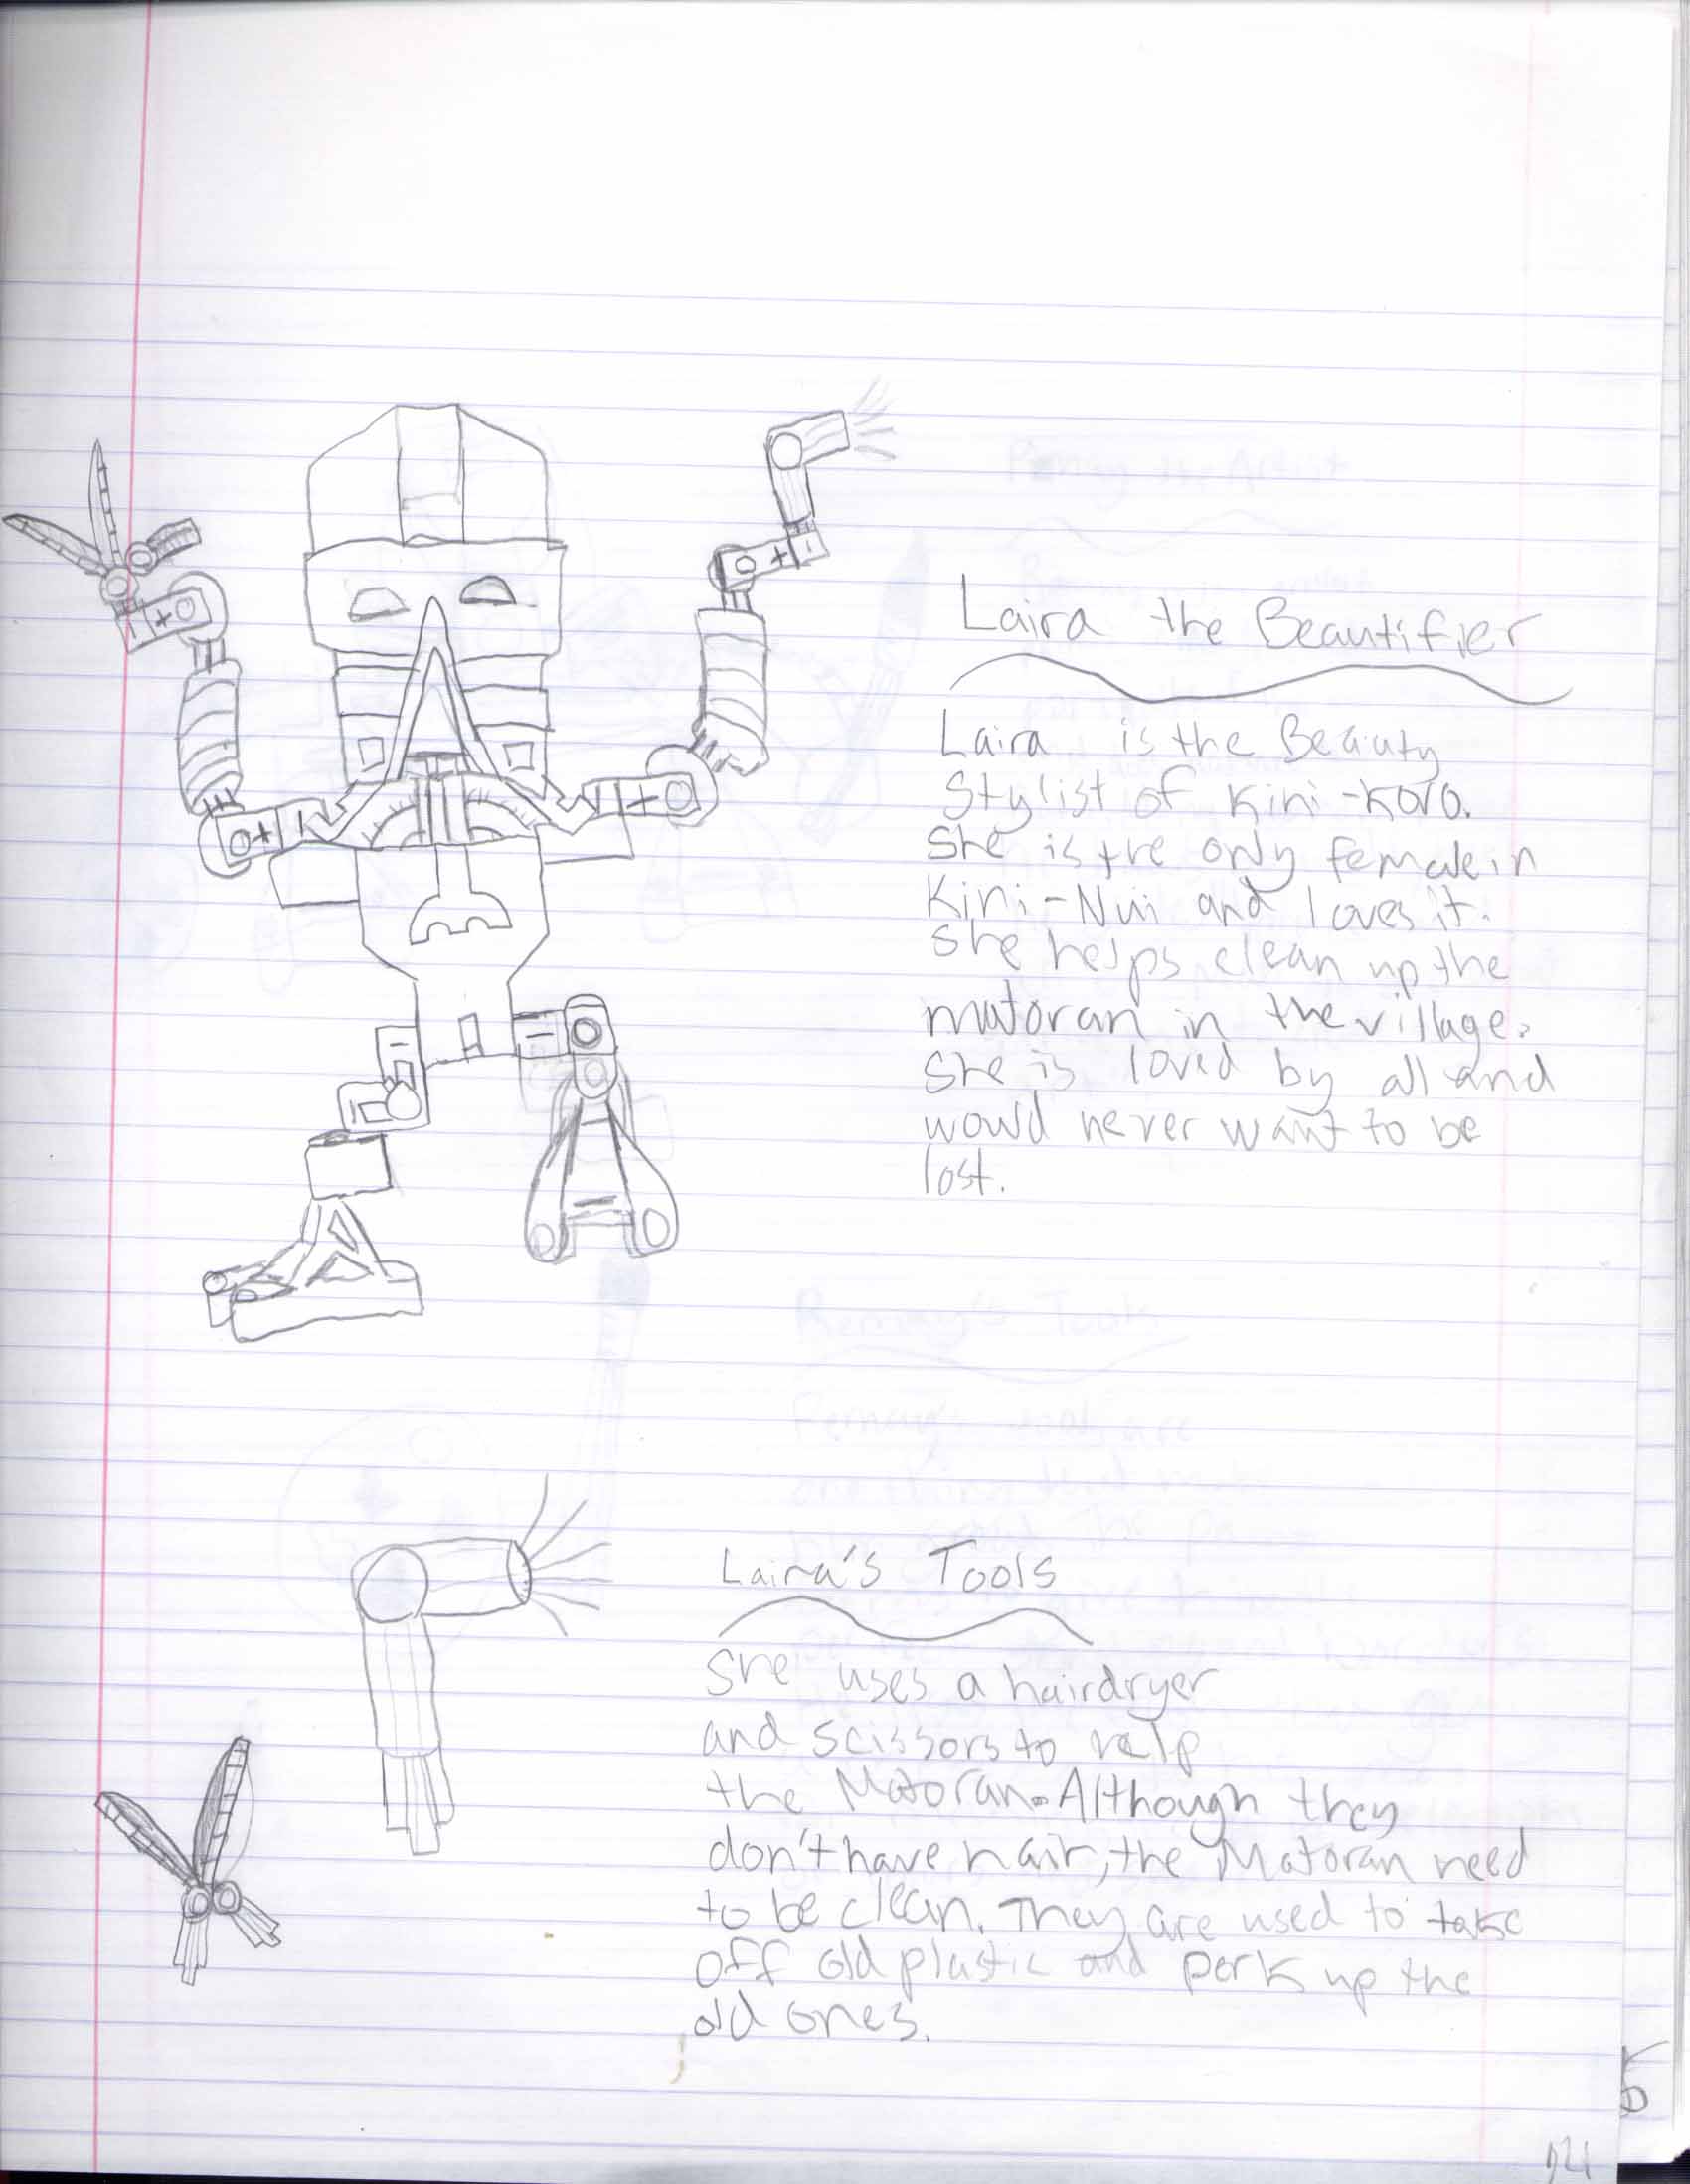 Laira the Beautifier
Laira is the Beauty
Stylist of Kini-Koro.
She is the only female in
Kini-Nui and loves it.
She helps clean up the
matoran in the village.
She is loved by all and
would never want to be
lost.
Laira's Tools
She uses a hairdryer
and scissors to help
the Matoran. Although they
don't have hair, the Matoran need
to be clean. They are used to take
off old plastic and perk up the
old ones.